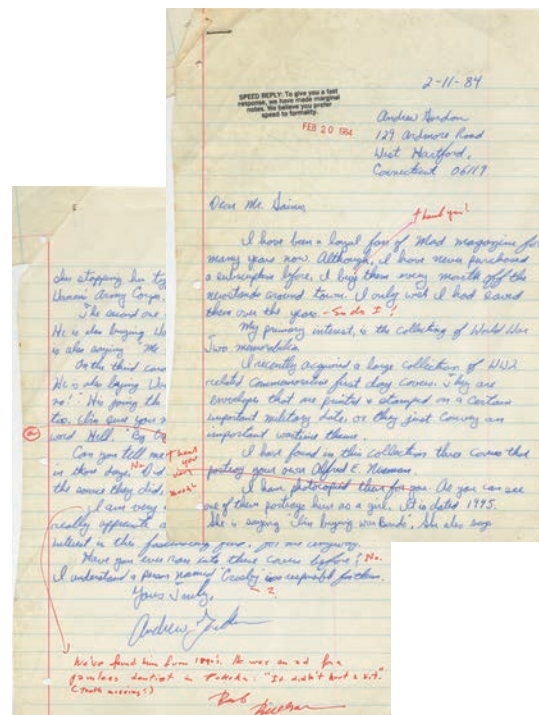 2-11-84
SPEED REPLY: To give you a fast
response, we have made marginal
notes. We believe you prefer
speed to formality.
FEB 20 1984
Andrew Gordon
129 Ardmore Road
West Hartford,
Connecticut 06119
Dear Mr. Gaines,
thank you!
I have been a loyal fan of Mad magazine for
many years now. Although, I have never purchased
a subscription before, I buy them every month off the
newstands around town. I only wish I had saved
them over the years. - So do I!
My primary interest, is the collecting of World War
Two memorabilia.
I recently acquired a large collection of WW2
related commemorative first day covers. They are
envelopes that are printed & stamped on a certain
important military date, or they just convey an
important wartime theme.
I have found in this collection three covers that
portray your own Alfred E. Neuman.
I have photocopied them for you. As you can see
one of them portrays him as a girl. It is dated 1945.
She is saying "I'm buying War Bonds". She also says
she stopping her
Women's Army Corps.
The second one
He is also buying
is also saying "Me
On the third
He is also
no!" He's joining the
too.
word Hell. "By
Can you tell me
in those days. Did
No
the source they did,
thank
you
very
much
I am very
really appreciate
interest in this fascinating find, for me anyway.
Have you ever run into these covers before? No.
I understand a person named "Crosby" was responsible for them.
- ?
Yours Truly,
Andrew Gordon
We've found him from 1890's. He was an ad for a
painless dentist in Topeka: "It didn't hurt a bit."
(tooth missing!)